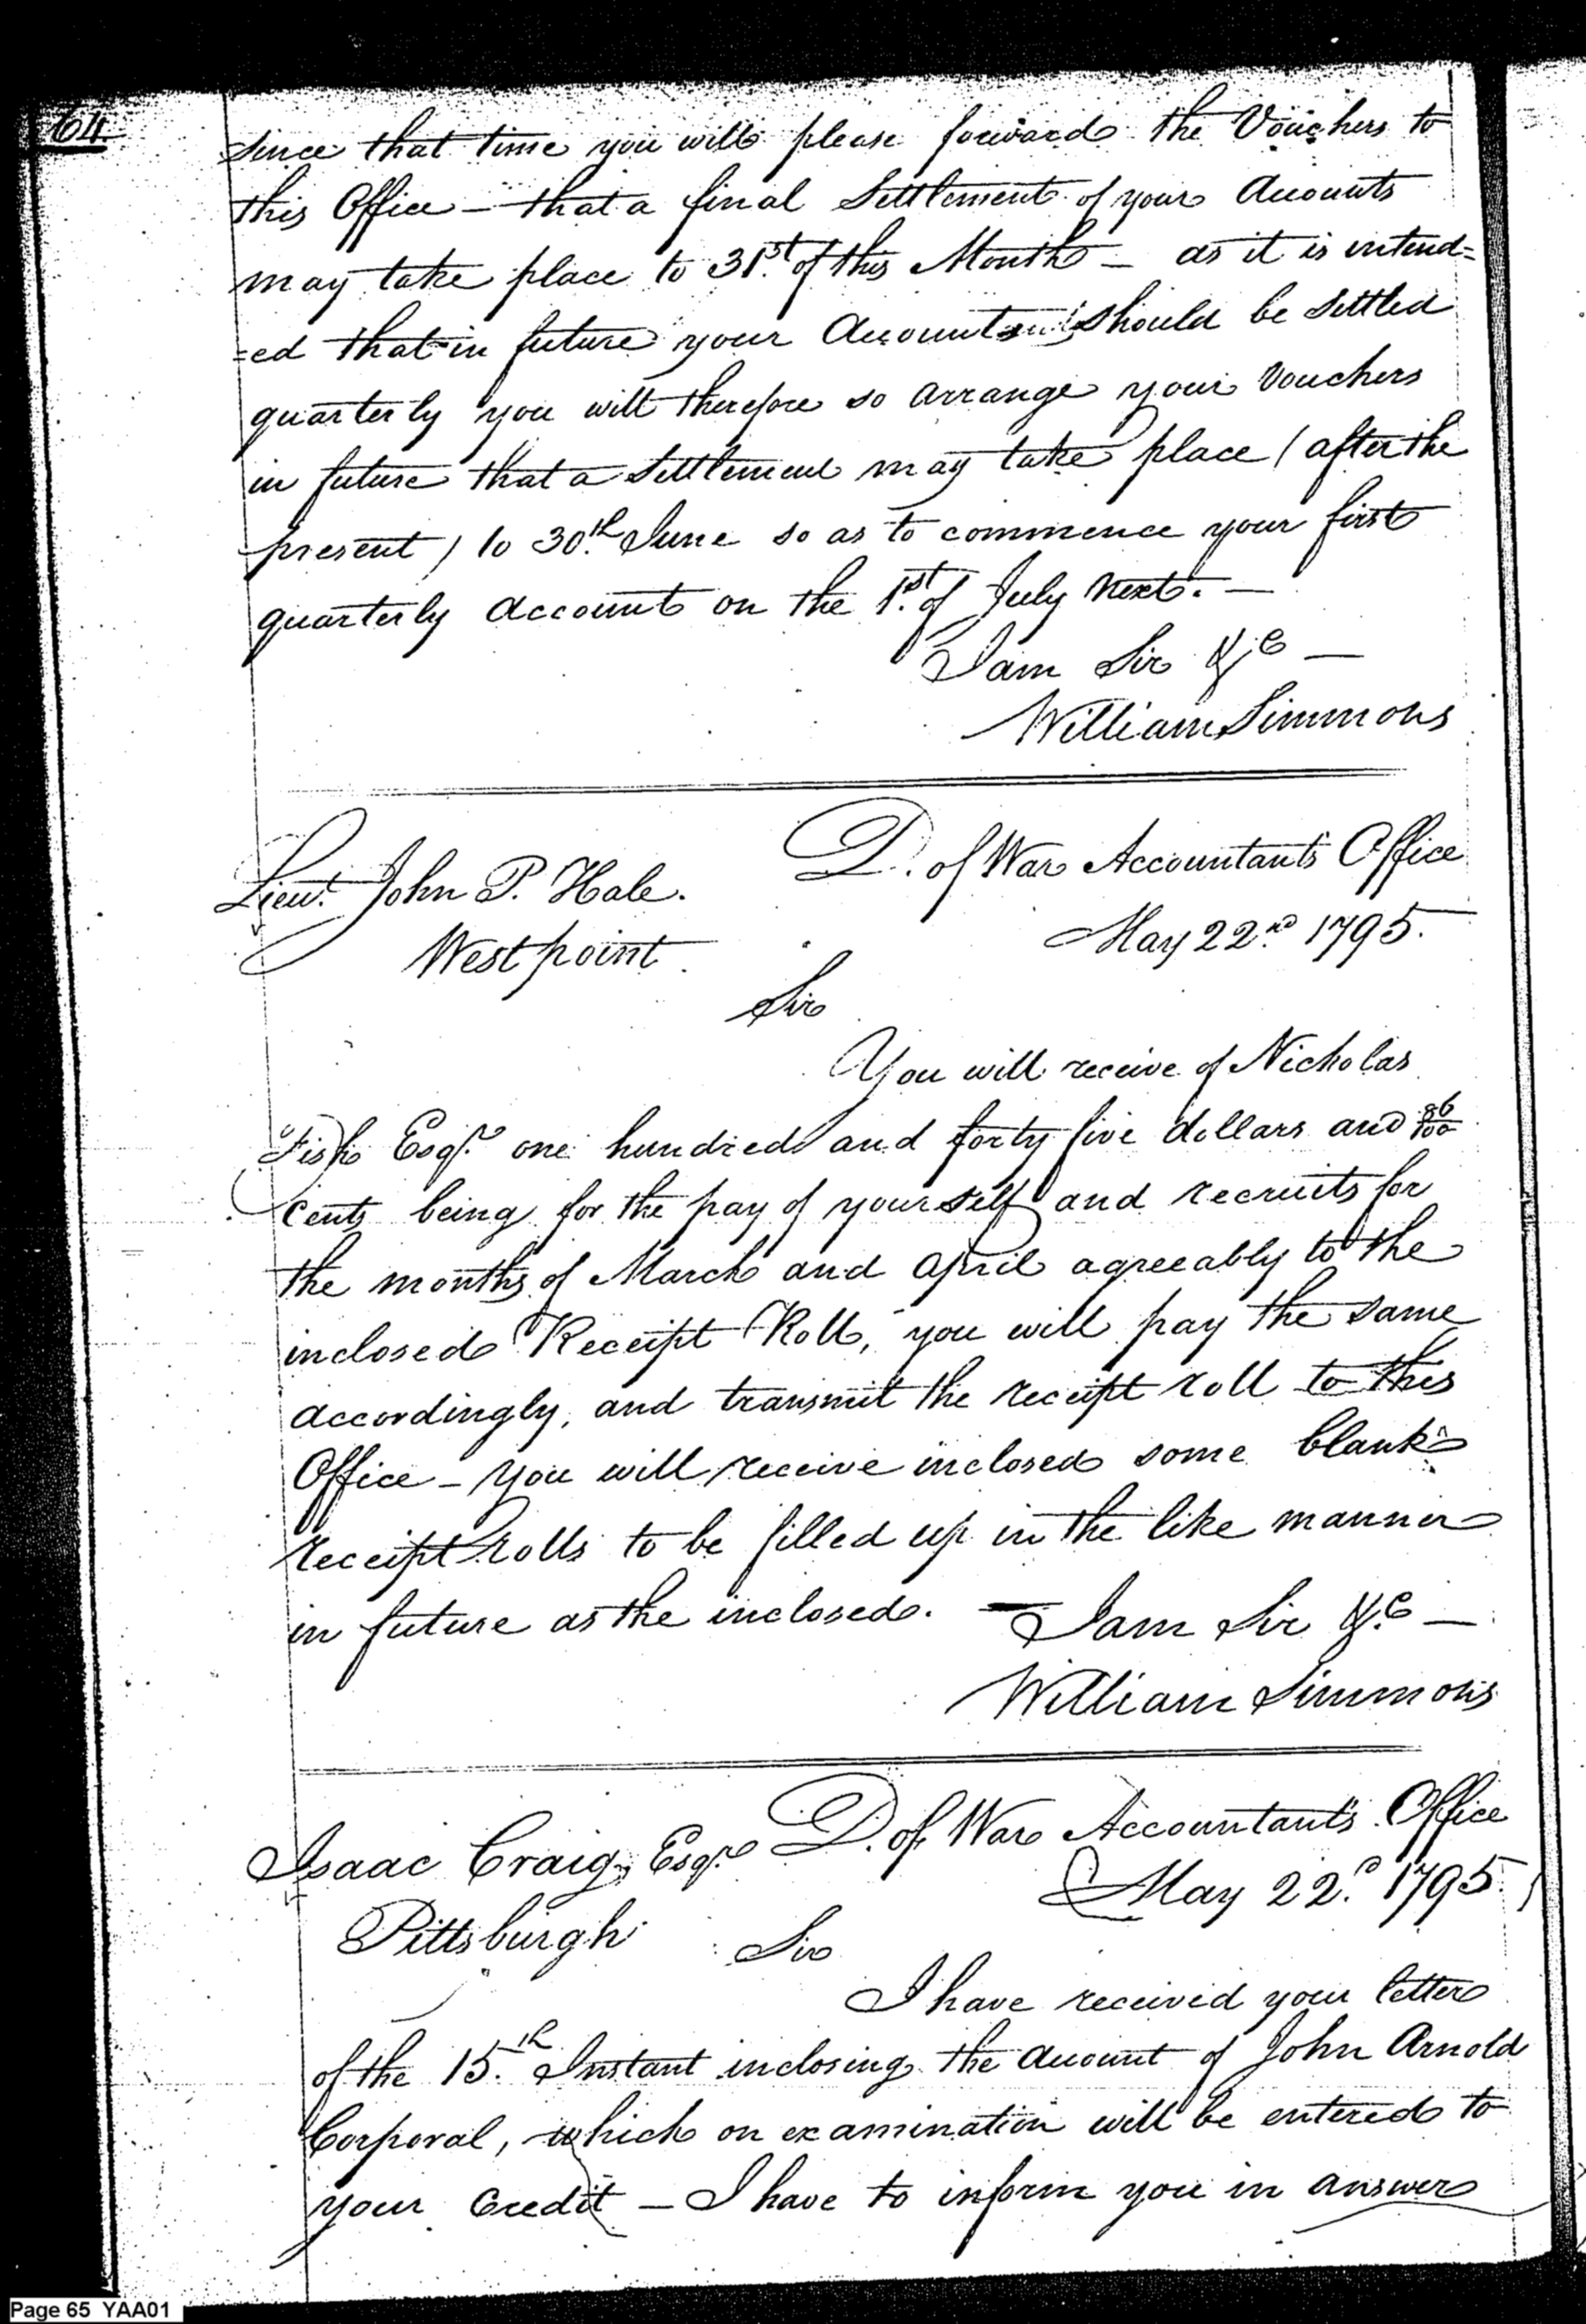 64
Since that time you will please forward the Vouchers to
this Office – that a final Settlement of your Accounts
may take place to 31st of this Month – as it is intend=
=ed that in future your Accounts should be settled
quarterly you will therefore so arrange your Vouchers
in future that a Settlement may take place (after the
present) to 30th June so as to commence your first
quarterly Account on the 1st of July next. —
I am Sir &c —
William Simmons
Lieut. John P. Hale.
D. of War Accountants Office
May 22nd 1795.
Westpoint
Sir
You will receive of Nicholas
Fish Esqr. one hundred and forty five dollars and 86/100
Cents being for the pay of yourself and recruits for
the months of March and April agreeably to the
inclosed Receipt Roll, you will pay the same
accordingly, and transmit the receipt roll to this
Office – you will receive inclosed some blank
receipt rolls to be filled up in the like manner
in future as the inclosed. — I am Sir &c —
William Simmons
Isaac Craig, Esqr
D. of War Accountant's Office
May 22d. 1795.
Pittsburgh
Sir
I have received your letter
of the 15th. Instant inclosing the Account of John Arnold
Corporal, which on examination will be entered to
your Credit – I have to inform you in answer
Page 65 YAA01